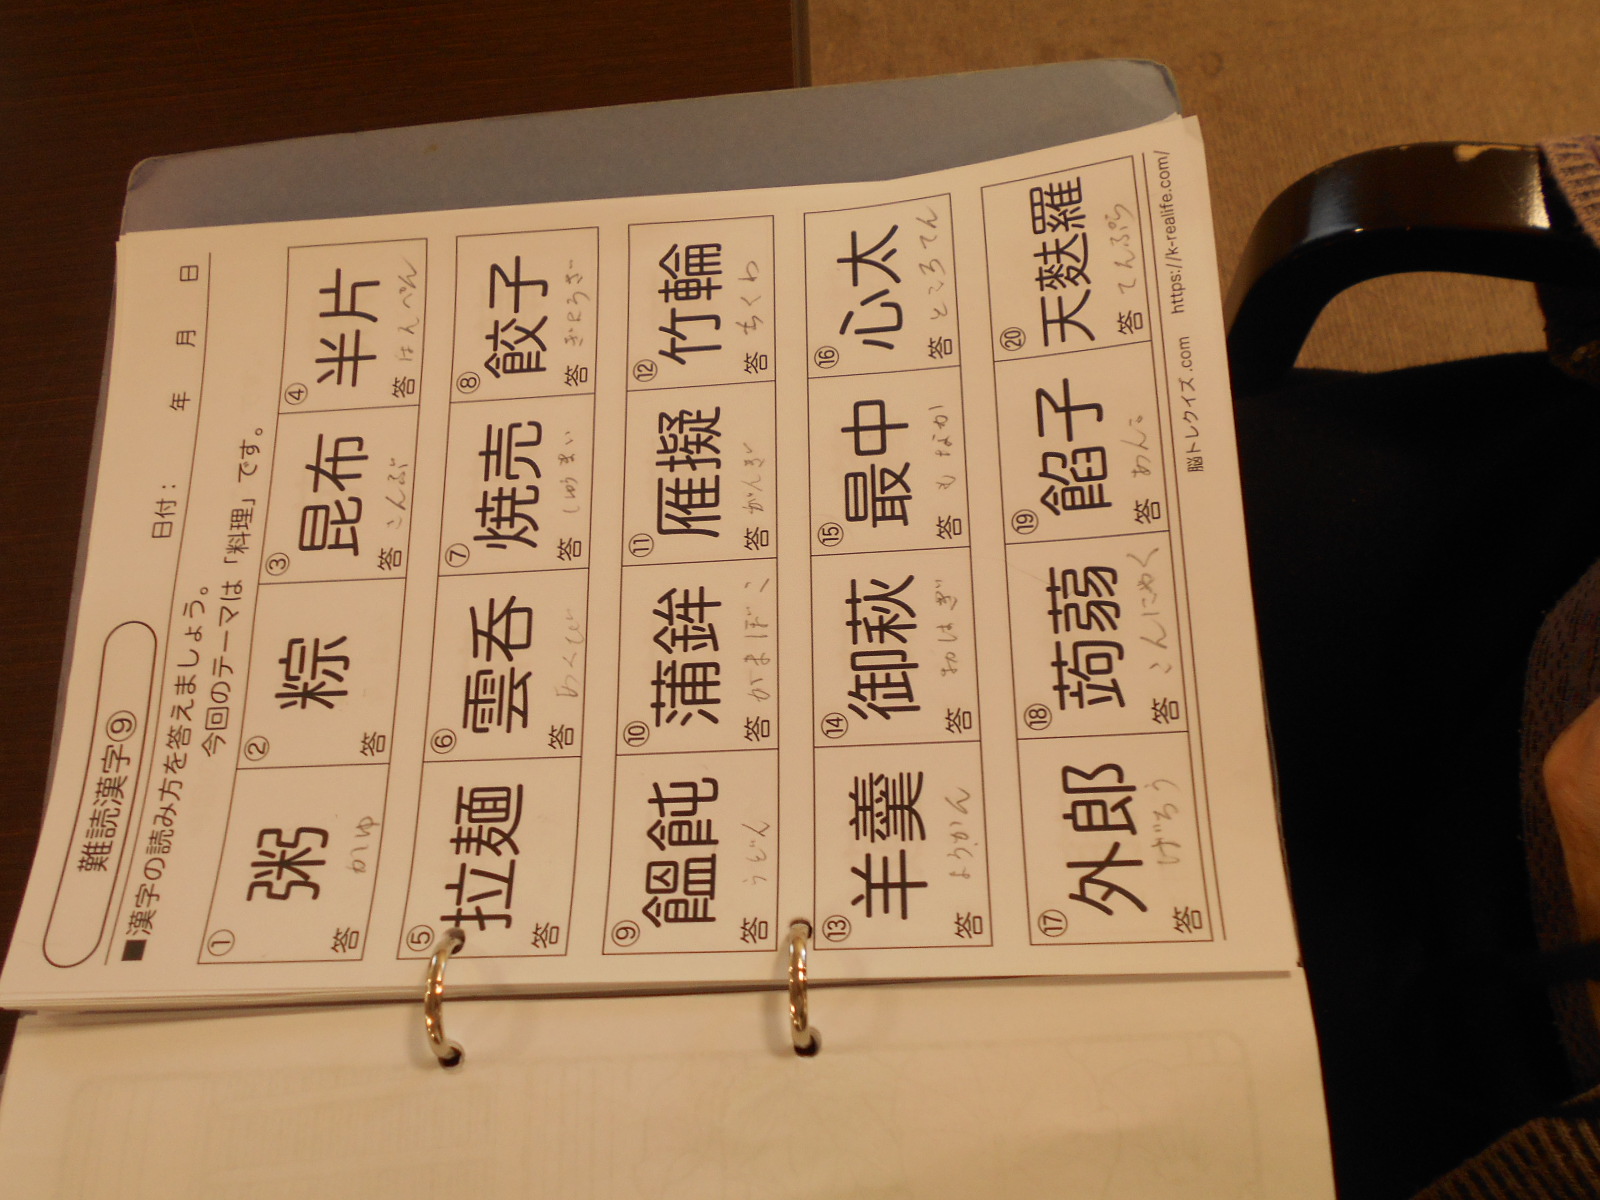 難読漢字⑨
日付： 年 月 日
■漢字の読み方を答えましょう。
今回のテーマは「料理」です。
① 粥 答 かゆ
② 粽 答
③ 昆布 答 こんぶ
④ 半片 答 はんぺん
⑤ 拉麺 答
⑥ 雲呑 答
⑦ 焼売 答 しゅうまい
⑧ 餃子 答 ぎょうざ
⑨ 饂飩 答 うどん
⑩ 蒲鉾 答 かまぼこ
⑪ 雁擬 答 がんぎ
⑫ 竹輪 答 ちくわ
⑬ 羊羹 答 ようかん
⑭ 御萩 答 おはぎ
⑮ 最中 答 もなか
⑯ 心太 答 ところてん
⑰ 外郎 答 げろう
⑱ 蒟蒻 答 こんにゃく
⑲ 餡子 答 あんこ
⑳ 天麩羅 答 てんぷら
脳トレクイズ.com https://k-realife.com/